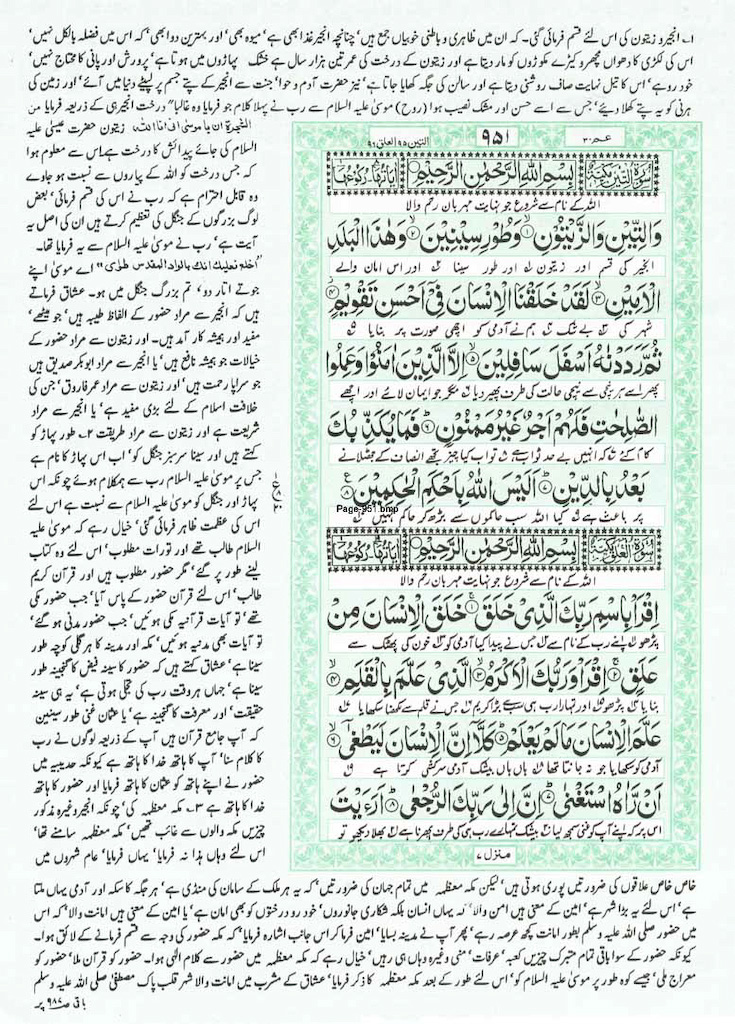 ا۔ انجیر و زیتون کی اس لئے قسم فرمائی گئی۔ کہ ان میں ظاہری و باطنی خوبیاں جمع ہیں' چنانچہ انجیر غذا بھی ہے' میوہ بھی' اور بہترین دوا بھی' کہ اس میں فضلہ بالکل نہیں'
اس کی لکڑی کا دھواں مچھر و کیڑے مکوڑوں کو مار دیتا ہے اور زیتون کے درخت کی عمر تین ہزار سال ہے خشک پہاڑوں میں ہوتا ہے' پرورش اور پانی کا محتاج نہیں'
خود رو ہے' اس کا تیل نہایت صاف روشنی دیتا ہے اور سالن کی جگہ کھایا جاتا ہے' نیز حضرت آدم و حوا' جنت سے انجیر کے پتے جسم پر لپیٹے دنیا میں آئے' اور زمین کی
ہرنی کو یہ پتے کھلا دیئے' جس سے اسے حسن اور مشک نصیب ہوا (روح) موسیٰ علیہ السلام سے رب نے پہلا کلام جو فرمایا وہ غالبا" درخت انجیر ہی کے ذریعہ فرمایا من
الشجرة ان یا موسیٰ انی انا اللہ زیتون حضرت عیسیٰ علیہ
السلام کی جائے پیدائش کا درخت ہے اس سے معلوم ہوا
کہ جس درخت کو اللہ کے پیاروں سے نسبت ہو جاوے
وہ قابل احترام ہے کہ رب نے اس کی قسم فرمائی' بعض
لوگ بزرگوں کے جنگل کی تعظیم کرتے ہیں ان کی اصل یہ
آیت ہے' رب نے موسیٰ علیہ السلام سے یہ فرمایا تھا۔
"اخلع نعلیک انک بالواد المقدس طوی" اے موسیٰ اپنے
جوتے اتار دو' تم بزرگ جنگل میں ہو۔ عشاق فرماتے
ہیں کہ انجیر سے مراد حضور کے الفاظ طیبہ ہیں' جو میٹھے'
مفید اور ہمیشہ کار آمد ہیں۔ اور زیتون سے مراد حضور کے
خیالات جو ہمیشہ نافع ہیں' یا انجیر سے مراد ابوبکر صدیق ہیں
جو سراپا رحمت ہیں' اور زیتون سے مراد عمر فاروق' جن کی
خلافت اسلام کے لئے بڑی مفید ہے' یا انجیر سے مراد
شریعت ہے اور زیتون سے مراد طریقت ۲۔ طور پہاڑ کو
کہتے ہیں اور سینا سرسبز جنگل کو' اب اس پہاڑ کا نام ہے
جس پر موسیٰ علیہ السلام رب سے ہمکلام ہوئے چونکہ اس
پہاڑ اور جنگل کو موسیٰ علیہ السلام سے نسبت ہے اس لئے
اس کی عظمت ظاہر فرمائی گئی' خیال رہے کہ موسیٰ علیہ
السلام طالب تھے اور تورات مطلوب' اس لئے وہ کتاب
لینے طور پر گئے' مگر حضور مطلوب ہیں اور قرآن کریم
طالب' اس لئے قرآن حضور کے پاس آیا' جب حضور مکی
تھے' تو آیات قرآنیہ مکی ہوئیں' جب حضور مدنی ہو گئے'
تو آیات بھی مدنیہ ہوئیں' مکہ اور مدینہ کا ہر گلی کوچہ طور
سینا ہے' عشاق کہتے ہیں کہ حضور کا سینہ فیض گنجینہ طور
سینا ہے' جہاں ہر وقت رب کی تجلی ہوتی ہے' یہ ہی سینہ
حقیقت' اور معرفت کا گنجینہ ہے' یا عثمان غنی طور سینین
کہ آپ جامع قرآن ہیں آپ کے ذریعہ لوگوں نے رب
کا کلام سنا' آپ کا ہاتھ خدا کا ہاتھ ہے کیونکہ حدیبیہ میں
حضور نے اپنے ہاتھ کو عثمان کا ہاتھ فرمایا اور حضور کا ہاتھ
خدا کا ہاتھ ہے ۳۔ مکہ معظمہ کی' چونکہ انجیر وغیرہ مذکور
چیزیں مکہ والوں سے غائب تھیں' مکہ معظمہ سامنے تھا'
اس لئے وہاں ہذا نہ فرمایا' یہاں فرمایا' عام شہروں میں
عم ۳۰
۹۵۱
التین ۹۵ العلق ۹۶
سُوْرَةُ التِّيْنِ مَكِّيَّةٌ
بِسْمِ اللهِ الرَّحْمٰنِ الرَّحِيْمِ
اللہ کے نام سے شروع جو نہایت مہربان رحم والا
وَالتِّيْنِ وَالزَّيْتُوْنِ ۙ۱ وَطُوْرِ سِيْنِيْنَ ۙ۲ وَهٰذَا الْبَلَدِ
انجیر کی قسم اور زیتون ف اور طور سینا ف اور اس امان والے
الْاَمِيْنِ ۙ۳ لَقَدْ خَلَقْنَا الْاِنْسَانَ فِيْٓ اَحْسَنِ تَقْوِيْمٍ ۙ۴
شہر کی ف بے شک ف ہم نے آدمی کو اچھی صورت پر بنایا ف
ثُمَّ رَدَدْنٰهُ اَسْفَلَ سَافِلِيْنَ ۙ۵ اِلَّا الَّذِيْنَ اٰمَنُوْا وَعَمِلُوا
پھر اسے ہر نیچی سے نیچی حالت کی طرف پھیر دیا ف مگر جو ایمان لائے اور اچھے
الصّٰلِحٰتِ فَلَهُمْ اَجْرٌ غَيْرُ مَمْنُوْنٍ ۶ فَمَا يُكَذِّبُكَ
کام کئے ف کہ انہیں بے حد ثواب ہے ف تو اب کیا چیز تجھے انصاف کے جھٹلانے
بَعْدُ بِالدِّيْنِ ۷ اَلَيْسَ اللهُ بِاَحْكَمِ الْحٰكِمِيْنَ ۸
Page-951.bmp
پر باعث ہے ف کیا اللہ سب حاکموں سے بڑھ کر حاکم نہیں ف
سُوْرَةُ الْعَلَقِ مَكِّيَّةٌ
بِسْمِ اللهِ الرَّحْمٰنِ الرَّحِيْمِ
اللہ کے نام سے شروع جو نہایت مہربان رحم والا
اِقْرَاْ بِاسْمِ رَبِّكَ الَّذِيْ خَلَقَ ۚ۱ خَلَقَ الْاِنْسَانَ مِنْ
پڑھو ف اپنے رب کے نام سے ف جس نے پیدا کیا آدمی کو ف خون کی پھٹک سے
عَلَقٍ ۚ۲ اِقْرَاْ وَرَبُّكَ الْاَكْرَمُ ۙ۳ الَّذِيْ عَلَّمَ بِالْقَلَمِ ۙ۴
بنایا ف پڑھو ف اور تمہارا رب ہی سب سے بڑا کریم ف جس نے قلم سے لکھنا سکھایا ف
عَلَّمَ الْاِنْسَانَ مَا لَمْ يَعْلَمْ ۵ كَلَّآ اِنَّ الْاِنْسَانَ لَيَطْغٰٓى ۙ۶
آدمی کو سکھایا جو نہ جانتا تھا ف ہاں ہاں بیشک آدمی سرکشی کرتا ہے ف
اَنْ رَّاٰهُ اسْتَغْنٰى ۷ اِنَّ اِلٰى رَبِّكَ الرُّجْعٰى ۸ اَرَءَيْتَ
اس پر کہ اپنے آپ کو غنی سمجھ لیا ف بیشک تمہارے رب ہی کی طرف پھرنا ہے ف بھلا دیکھو تو
منزل ۷
خاص خاص علاقوں کی ضرورتیں پوری ہوتی ہیں' لیکن مکہ معظمہ میں تمام جہان کی ضرورتیں' کہ یہ ہر ملک کے سامان کی منڈی ہے' ہر جگہ کا سکہ اور آدمی یہاں ملتا
ہے' اس لئے یہ بڑا شہر ہے' امین کے معنی ہیں امن والا' کہ یہاں انسان بلکہ شکاری جانوروں' خود رو درختوں کو بھی امان ہے' یا امین کے معنی ہیں امانت والا' کہ اس
میں حضور صلی اللہ علیہ وسلم بطور امانت کچھ عرصہ رہے' پھر آپ نے مدینہ بسایا' امین فرما کر اس جانب اشارہ فرمایا' کہ مکہ حضور کی وجہ سے قسم فرمانے کے لائق ہوا۔
کیونکہ حضور کے سوا باقی تمام متبرک چیزیں کعبہ' عرفات' منی وغیرہ وہاں ہی رہیں' خیال رہے کہ مکہ معظمہ میں حضور سے کلام الٰہی ہوا۔ حضور کو قرآن ملا' حضور کو
معراج ملی' جیسے کوہ طور پر موسیٰ علیہ السلام کو' اس لئے طور کے بعد مکہ معظمہ کا ذکر فرمایا' عشاق کے مشرب میں امانت والا شہر قلب پاک مصطفیٰ صلی اللہ علیہ وسلم
باقی صہ ۹۸۷ پر